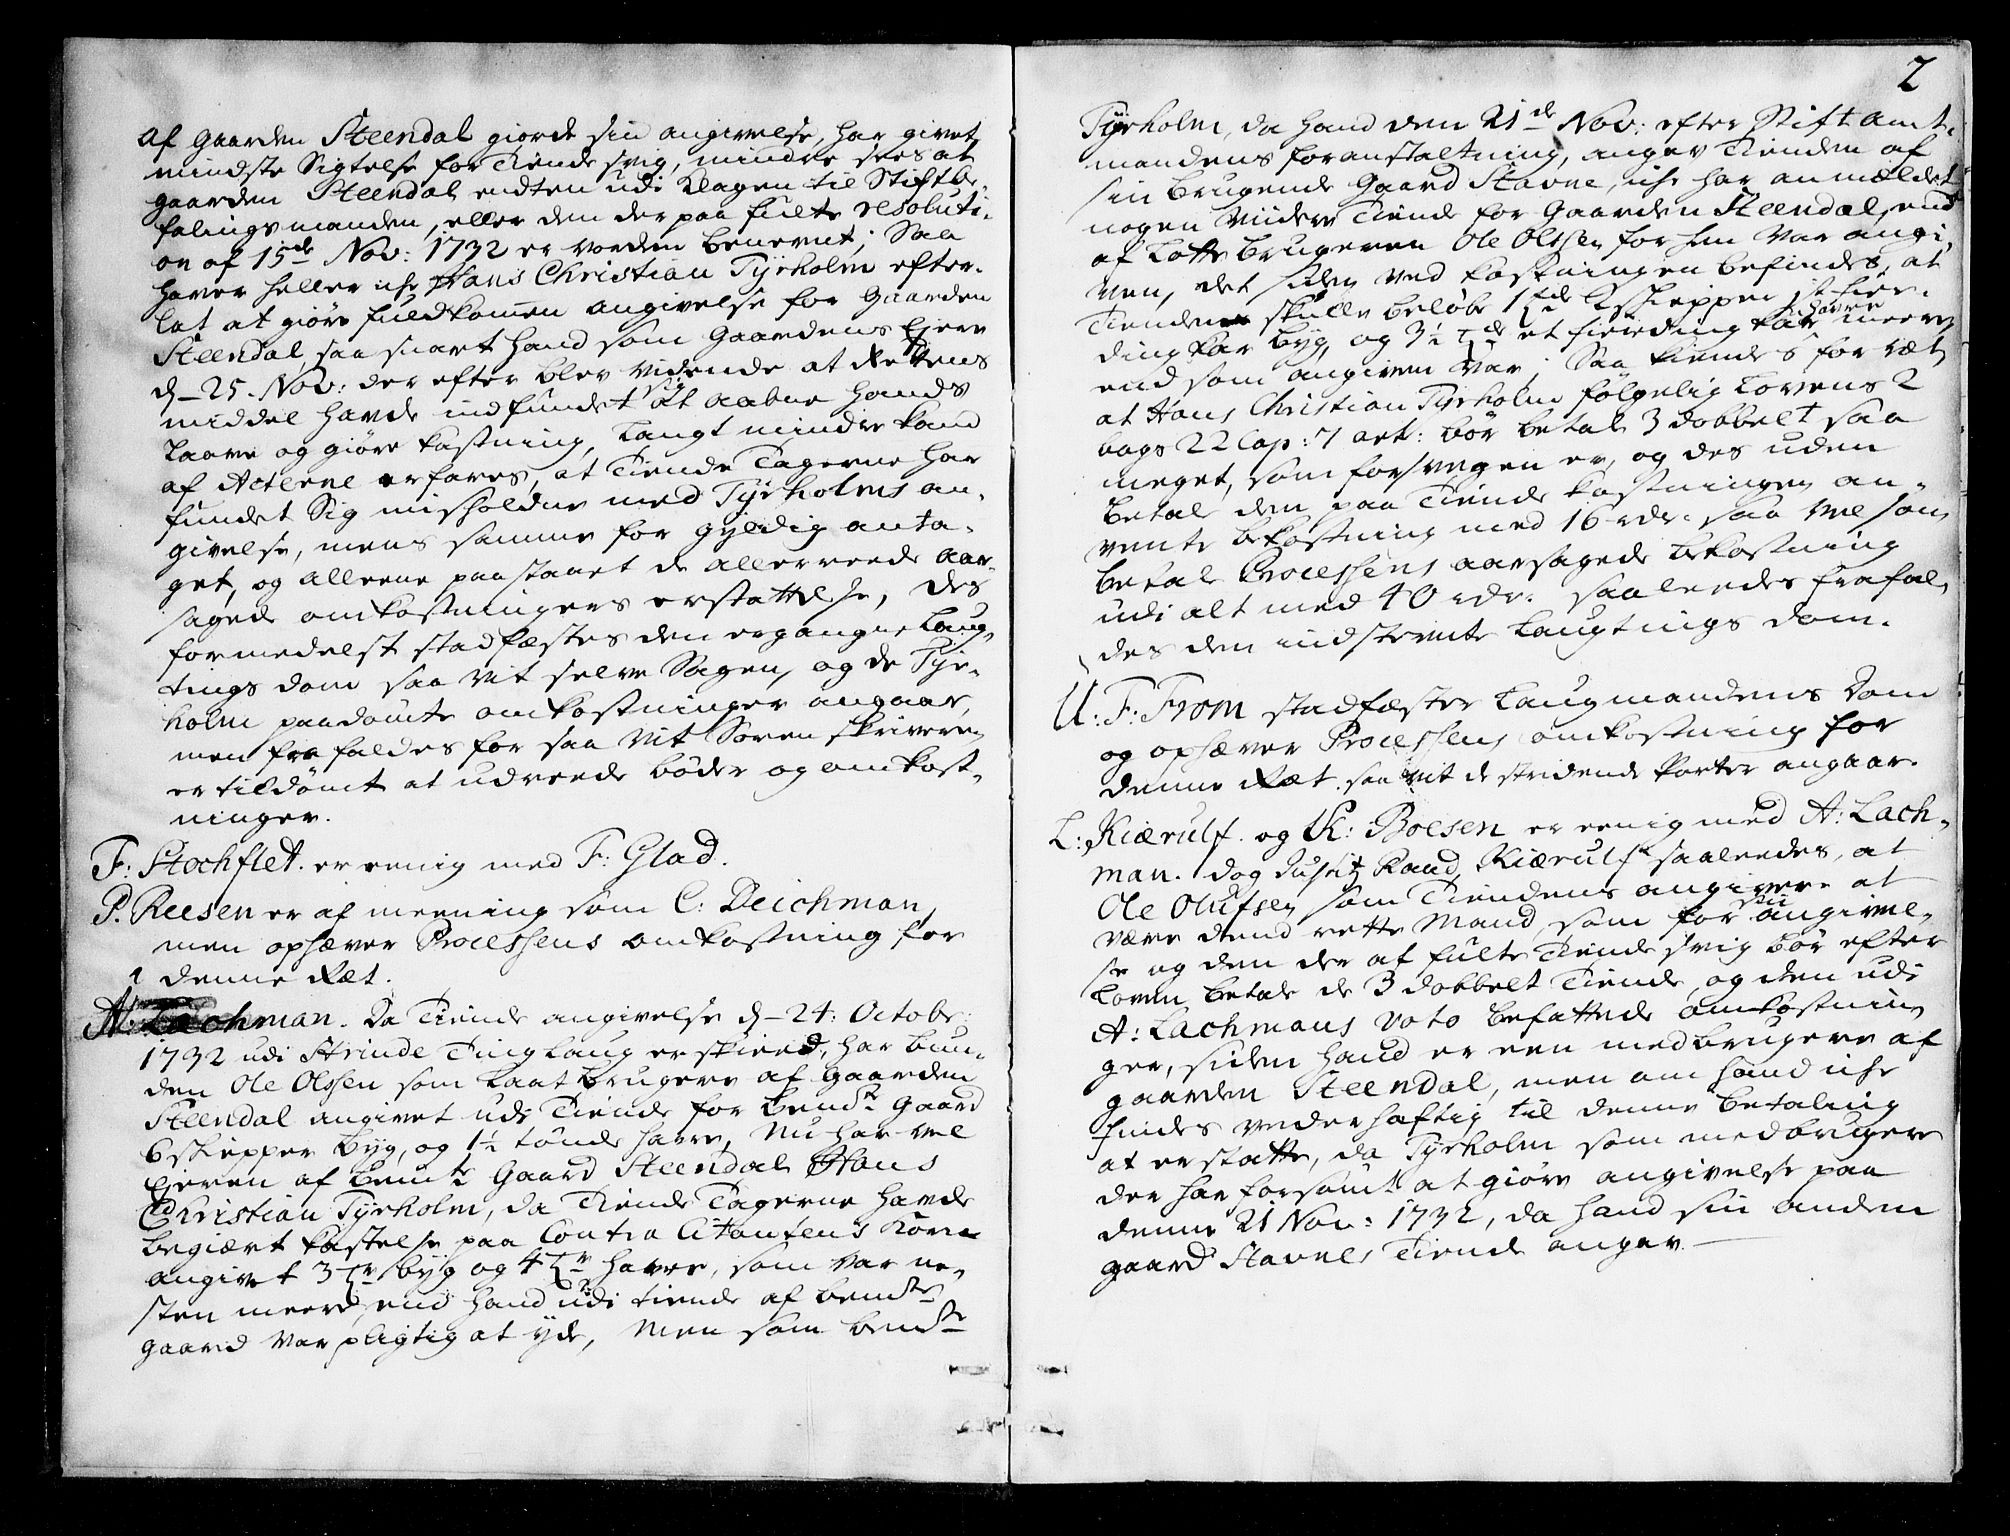 af Gaarden Steendal giorde sin angivelse, har givet
mindste Sigtelse for Tiende svig, mindre sees at
gaarden Steendal endten udi Klagen til Stiftbe-
falingsmanden, eller den der paa fulte resoluti-
on af 15de Nov: 1732 er worden benevnt; Saa
haver heller iche Hans Christian Tyrholm efter-
lat at giøre fuldkomen angivelse for Gaarden
Steendal, saa snart hand som Gaardens Ejere
d. 25. Nov: der efter blev vidende at Rettens
middel havde indfundet sig at aabne hands
Laave og giøre kastning, langt mindre kand
af Acterne erfares, at Tiende Tagerne har
fundet Sig misholdne med Tyrholms an-
givelse, mens samme for gyldig anta-
get, og alleene paastaaet de allerreede aar-
sagede omkostningers erstattelse, des
formedelst stadfæstes den ergangne Laug-
tings dom saa vit selve Sagen, og de Tyr-
holm paadømte omkostninger angaar,
men fra faldes for saa vit Soren skriveren
er tildømt at udreede bøder og omkost-
ninger.
F: Stochflet. er eenig med F: Glad.
P. Reesen er af meening som C: Deichman,
men ophæver Processens omkostning for
denne Ræt.
A: Lachman. Da Tiende angivelse d. 24: Octobr:
1732 udi Strinde Tinglaug er skieed, har bun-
den Ole Olssen som Laat brugere af Gaarden
Steendal angivet udi Tiende for bemdte Gaard
6 skiepper byg, og 1½ tønde havre, Nu har vel
Ejeren af bemte Gaard Steendal Hans
Christian Tyrholm, da Tiende Tagerne havde
begiært kastelse paa Contra Citantens Korn
angivet 3 tr byg og 4 tr havre, som var ne-
sten meere, end hand udi tiende af bemdte
gaard var pligtig at yde, Men som bemdte
2
Tyrholm, da hand den 21de Nov: efter Stiftamt-
mandens foranstaltning, angav Tienden af
sin brugende Gaard Stavne, iche har anmældet
nogen vidre Tiende for Gaarden Steendal, end
af Lotte brugeren Ole Olssen for hen var angi-
ven, det siden ved kastningen befindes, at
Tienden skulle beløbe 1 tde skiepper fier-
ding kar byg, og 3½ tde et fierding kar havre meere
end som angiven var; Saa kiendes for ræt
at Hans Christian Tyrholm følgelig Lovens 2
bogs 22 Cap: 7 art: bør betale 3 dobbelt saa
meget, som forsvegen er, og des uden
betale den paa Tiende kastningen an-
vente bekostning med 16 rdr. saa vel som
betale Processens aarsagede bekostning
udi alt med 40 rdr. saaleedes frafal-
des den indstevnte Laugtings dom.
U: F: From stadfæster Laugmandens Dom
og ophæver Processens omkostning for
denne Ræt. saa vit de stridende Parter angaar.
L: Kiærulf. og K: Boesen er eenig med A: Lach-
man. dog Justitz Raad Kiærulf saaleedes, at
Ole Olufsen som Tiendens angivere at
være dend rette Mand, som for sin angivel-
se og den der af fulte Tiende svig bør efter
Loven betale de 3 dobbelt Tiende, og den udi
A: Lachmans voto befattede omkostnin-
ger, siden hand er een medbrugere af
gaarden Steendal, men om hand iche
findes vederhæftig til denne betaling
at erstatte, da Tyrholm som medbrugere
der har forsømt at giøre angivelse paa
denne 21 Nov: 1732, da hand sin anden
gaard Stavnes Tiende angav.